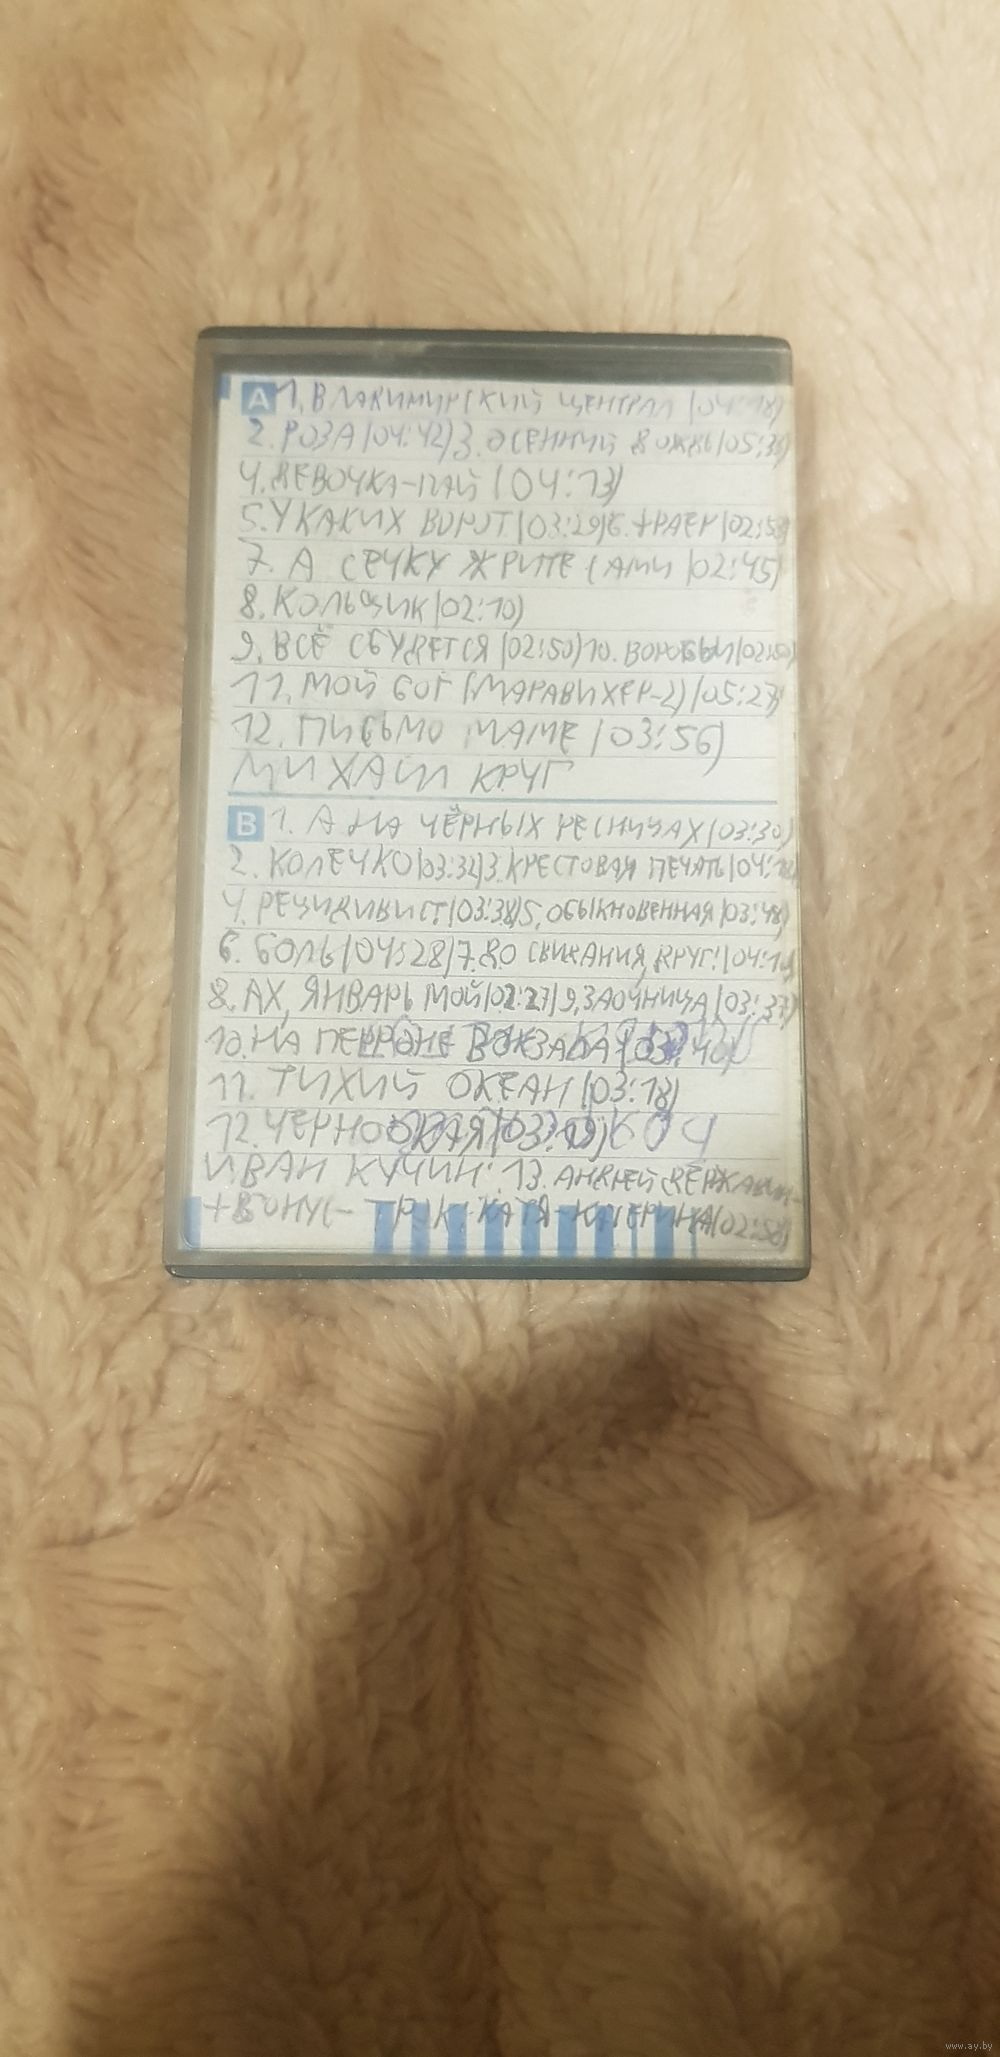 A 1. ВЛАДИМИРСКИЙ ЦЕНТРАЛ (04:18)
2. РОЗА (04:42) 3. ОСЕННИЙ ДОЖДЬ (05:
4. ДЕВОЧКА-ПАЙ (04:13)
5. У КАКИХ ВОРОТ (03:29) 6. ФРАЕР (02:58
7. А СЕЧКУ ЖРИТЕ САМИ (02:45)
8. КОЛЬЩИК (02:10)
9. ВСЁ СБУДЕТСЯ (02:50) 10. ВОРОБЬИ (02:50)
11. МОЙ БОГ (МАРАВИХЕР-2) (05:27)
12. ПИСЬМО МАМЕ (03:56)
МИХАИЛ КРУГ
B 1. А НА ЧЁРНЫХ РЕСНИЦАХ (03:30)
2. КОЛЕЧКО (03:32) 3. КРЕСТОВАЯ ПЕЧАТЬ (04:
4. РЕЦИДИВИСТ (03:38) 5. ОБЫКНОВЕННАЯ (03:48)
6. БОЛЬ (04:28) 7. ДО СВИДАНИЯ, ДРУГ! (04:
8. АХ, ЯНВАРЬ МОЙ (02:27) 9. ЗАОЧНИЦА (03:37)
10. НА ПЕРРОНЕ ВОКЗАЛА (03:40)
11. ТИХИЙ ОКЕАН (03:18)
12. ЧЕРНООКАЯ (03:19)
ИВАН КУЧИН: 13. АНДРЕЙ ДЕРЖАВИН-
+БОНУС- ТРЭК- КАТЯ-КАТЕРИНА (02:58)
www.ay.by